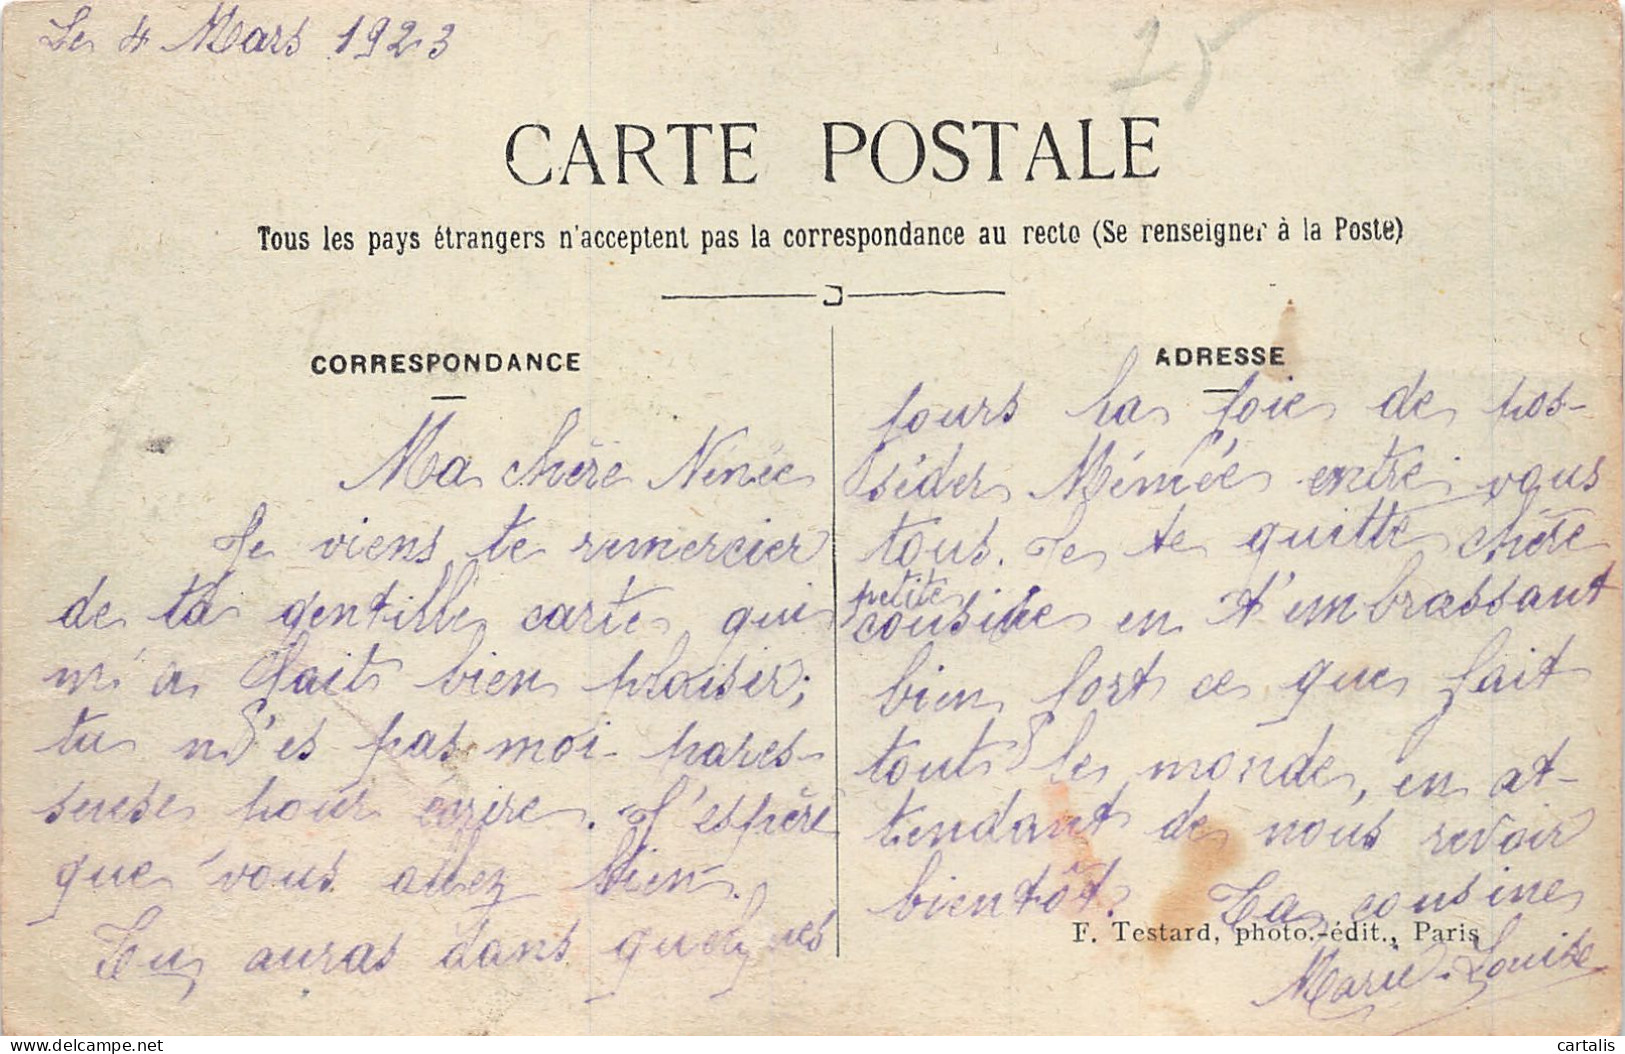 Le 4 Mars 1923
75
CARTE POSTALE
Tous les pays étrangers n'acceptent pas la correspondance au recto (Se renseigner à la Poste)
CORRESPONDANCE
Ma chère Nénée
Je viens te remercier
de ta gentille carte qui
m'a fait bien plaisir;
tu n'es pas moi pares-
seuse pour écrire. J'espère
que vous allez bien.
Tu auras dans quelques
ADRESSE
jours la joie de pos-
séder Mémée entre vous
tous. Je te quitte chère
petite
cousine en t'embrassant
bien fort ce que fait
tout le monde, en at-
tendant de nous revoir
bientôt. Ta cousine
F. Testard, photo.-édit., Paris
Marie-Louise
cartalis
delcampe.net